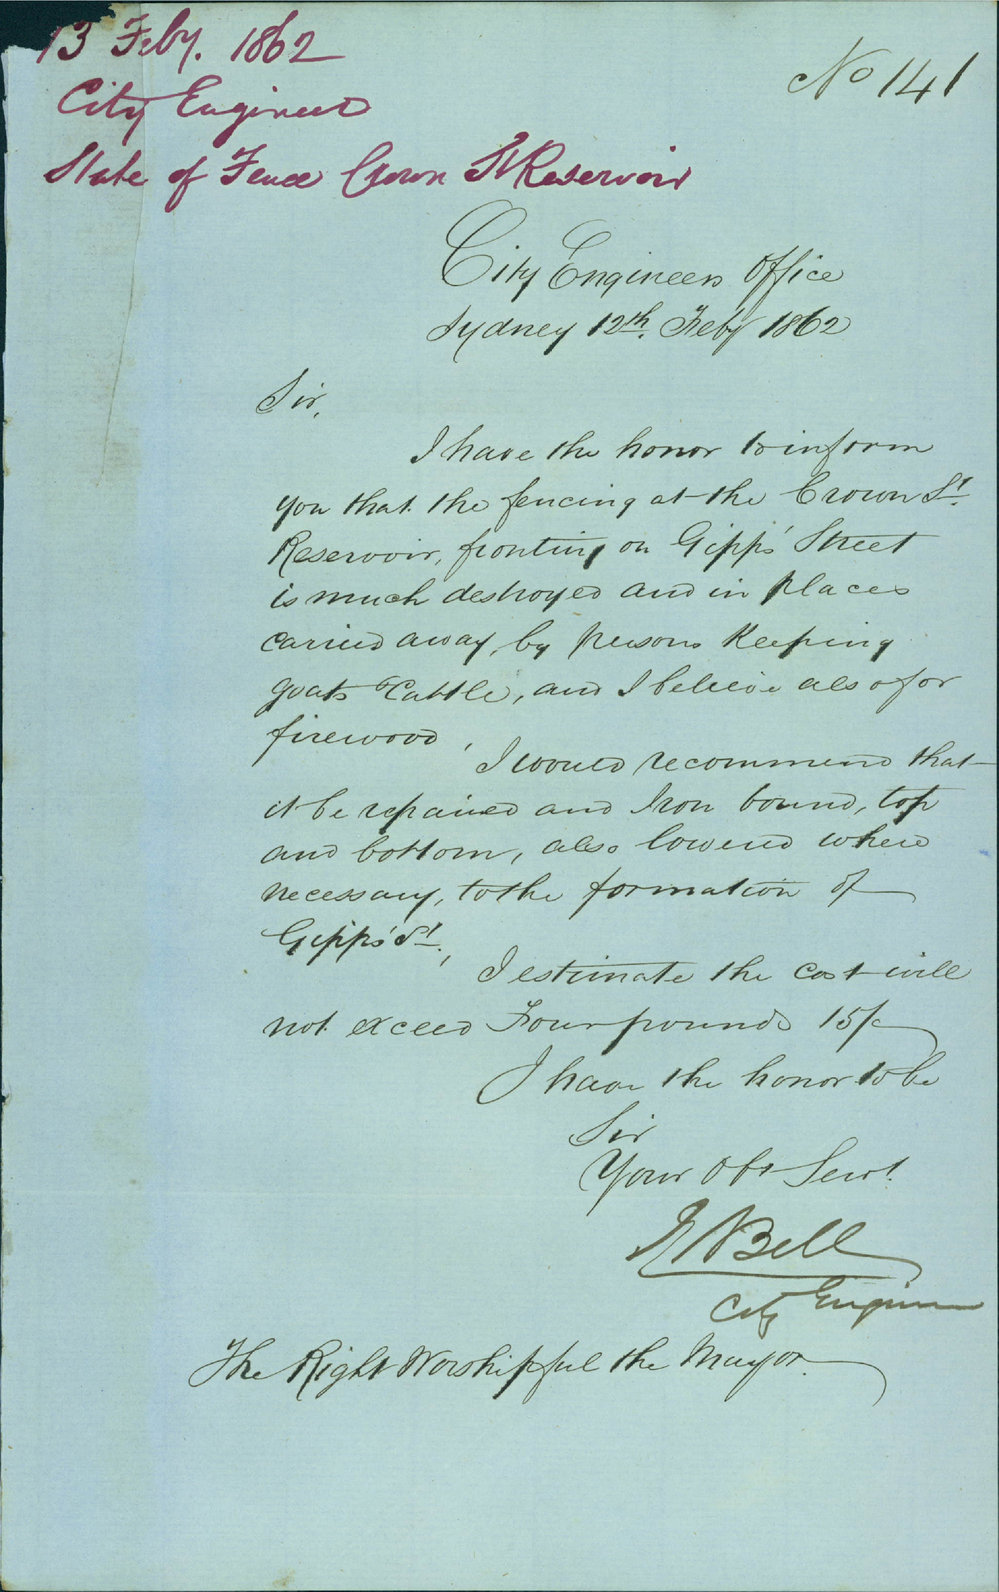 13 Feby. 1862
No 141
City Engineer
State of Fence Crown St Reservoir
City Engineers Office
Sydney 12th. Feby 1862
Sir,
I have the honor to inform
you that the fencing at the Crown St.
Reservoir, fronting on Gipps' Street
is much destroyed and in places
carried away, by persons keeping
goats & Cattle, and I believe also for
firewood,
I would recommend that
it be repaired and Iron bound, top
and bottom, also lowered where
necessary, to the formation of
Gipps' St.,
I estimate the cost will
not exceed Four pounds 15/-
I have the honor to be
Sir
Your Obt Servt.
Bell
City Engineer
The Right Worshipful the Mayor.